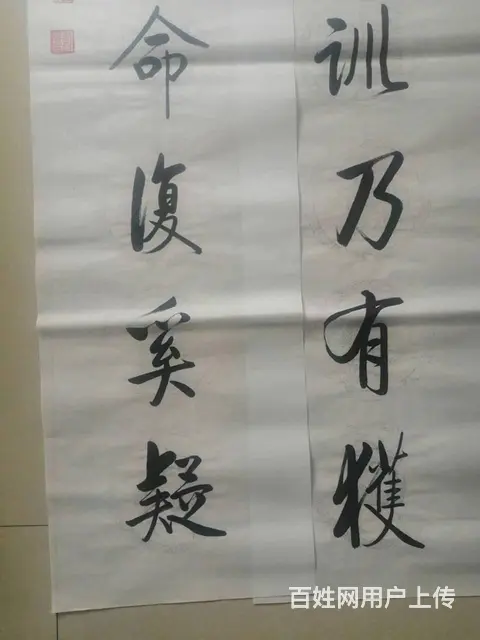 訓乃有獲
命復奚疑
百姓网用户上传